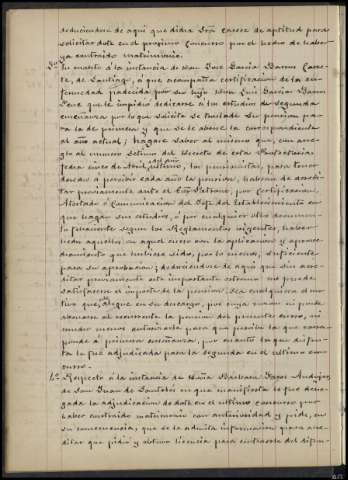 deduciéndose de aquí que dicha Srª carece de aptitud para
solicitar dote en el próximo Concurso por el hecho de haber
ya contraido matrimonio.
3º En cuanto á la instancia de Don José García Barros
de Santiago, á que acompaña certificación de la en-
fermedad padecida por su hijo Don Luis García Barros
que le impidió dedicarse á los estudios de segunda
enseñanza por lo que solicita se traslade su pension pa-
ra la de primera y que se le abone la correspondiente
al año actual; hágase saber al mismo que, con arre-
glo al número sétimo del Decreto de esta
fecha cinco de Abril del año último, los pensionistas, para tener
derecho á percibir cada año la pensión, habrán de acredi-
tar previamente ante el Patrono, por Certificación,
Atestado ó Comunicación del Jefe del Establecimiento en
que hagan sus estudios, ó por cualquier otro documen-
to fehaciente segun los Reglamentos vigentes, haber
hecho aquellos en aquel curso con la aplicación y aprove-
chamiento que hubiera sido, por lo menos, suficiente
para su aprobacion; deduciéndose de aquí que sin acre-
ditar previamente este importante extremo no puede
satisfacerse el importe de la pensión, sea cualquiera el mo-
tivo que se alegue en su descargo, por cuya razon ni puede
abonarse al recurrente la pension del presente curso, ni
mucho menos autorizarle para que perciba la que corres-
ponde á primera enseñanza, por cuanto la que disfru-
ta le fué adjudicada para la segunda en el último con-
curso.
4º Respecto á la instancia de Doña Bárbara
de San Juan de en que manifiesta le fué dene-
gada la adjudicacion de dote en el último concurso por
haber contraido matrimonio con anterioridad y pide, en
su consecuencia, que se le admita informacion para acre-
ditar que pidió y obtuvo licencia para contraerlo del difun-